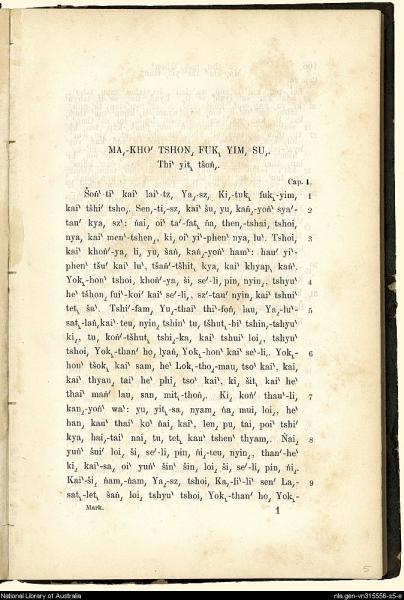 MA,-KHO⸍ TSHON, FUK˛ YIM, SU,.
Thi⸌ yit˛ tšoṅ,.
Cap. 1.
Šoṅ⸌-ti⸌ kai⸌ lai⸌-tz, Ya,-sz, Ki,-tuk˛ fuk˛-yim, 1
kai⸌ tšhi⸍ tsho,. Sen,-ti,-sz, kai⸌ šu, yu, kaṅ,-yoṅ⸌ sya⸍- 2
tau⸍ kya, sz⸌: ṅai, oi⸌ ta⸍-fat˛ ṅa, then,-tshai, tshoi,
nya, kai⸌ men⸌-tshen,, ki, oi⸌ yi⸌-phen⸌ nya, lu⸌. Tshoi, 3
kai⸌ khoṅ⸍-ya, li, yu, šaṅ, kaṅ,-yoṅ⸌ ham⸌: hau⸍ yi⸌-
phen⸌ tšu⸍ kai⸌ lu⸌, tšaṅ⸍-tšhit˛ kya, kai⸌ khyap˛ kaṅ⸌.
Yok˛-hon⸌ tshoi, khoṅ⸍-ya, ši, se⸍-li, pin, nyin,, tshyu⸌ 4
he⸌ tšhon, fui⸌-koi⸍ kai⸌ se⸍-li,, sz⸍-tau⸍ nyin, kai⸌ tshui⸌
tet˛ ša⸌. Tšhi⸍-fam, Yu,-thai⸌ thi⸌-foṅ, lau, Ya,-lu⸌- 5
sat˛-laṅ, kai⸌-teu, nyin, tšhin⸌ tu, tšhut˛-hi⸌ tshin,-tshyu⸌
ki,, tu, koṅ⸍-tšhut˛ tshi,-ka, kai⸌ tshui⸌ loi,, tshyu⸌
tshoi, Yok˛-than⸍ ho, lyaṅ, Yok˛-hon⸌ kai⸌ se⸍-li,. Yok˛- 6
hon⸌ tšok˛ kai⸌ sam, he⸌ Lok˛-tho,-mau, tso⸌ kai⸌, kai,
kai⸌ thyau, tai⸌ he⸌ phi, tso⸌ kai⸌, ki, šit˛ kai⸌ he⸌
thai⸌ maṅ⸍ lau, san, mit˛-thoṅ,. Ki, koṅ⸍ thau⸌-li, 7
kaṅ,-yoṅ⸌ wa⸌: yu, yit˛-sa, nyam, ṅa, mui, loi,, he⸌
han, kau⸌ thai⸌ ko⸌ ṅai, kai⸌, len, pu, tai, poi⸌ tshi⸍
kya, hai,-tai⸌ nai, tu, tet˛ kau⸌ tshen⸌ thyam,. Ṅai, 8
yuṅ⸌ šui⸍ loi, ši, se⸍-li, pin, ṅi,-teu, nyin,, than⸍-he⸌
ki, kai⸌-sa, oi⸌ yuṅ⸌ šin⸌ šin, loi, ši, se⸍-li, pin, ṅi,.
Kai⸌-ši, ṅam,-ṅam, Ya,-sz, tshoi, Ka,-li⸌-li⸌ sen⸍ La,- 9
sat˛-let˛ šaṅ, loi, tshyu⸌ tshoi, Yok˛-than⸍ ho, Yok˛-
Mark. 1
5
National Library of Australia
nla.gen-vn315556-s5-e